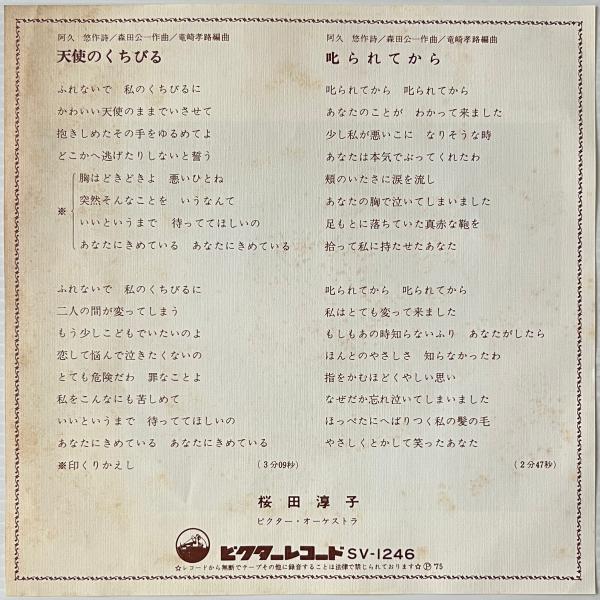 阿久 悠作詩／森田公一作曲／竜崎孝路編曲
天使のくちびる
ふれないで 私のくちびるに
かわいい天使のままでいさせて
抱きしめたその手をゆるめてよ
どこかへ逃げたりしないと誓う
胸はどきどきよ 悪いひとね
突然そんなことを いうなんて
※
いいというまで 待っててほしいの
あなたにきめている あなたにきめている
ふれないで 私のくちびるに
二人の間が変ってしまう
もう少しこどもでいたいのよ
恋して悩んで泣きたくないの
とても危険だわ 罪なことよ
私をこんなにも苦しめて
いいというまで 待っててほしいの
あなたにきめている あなたにきめている
※印くりかえし (3分09秒)
阿久 悠作詩／森田公一作曲／竜崎孝路編曲
叱られてから
叱られてから 叱られてから
あなたのことが わかって来ました
少し私が悪いこに なりそうな時
あなたは本気でぶってくれたわ
頬のいたさに涙を流し
あなたの胸で泣いてしまいました
足もとに落ちていた真赤な鞄を
拾って私に持たせたあなた
叱られてから 叱られてから
私はとても変って来ました
もしもあの時知らないふり あなたがしたら
ほんとのやさしさ 知らなかったわ
指をかむほどくやしい思い
なぜだか忘れ泣いてしまいました
ほっぺたにへばりつく私の髪の毛
やさしくとかして笑ったあなた
(2分47秒)
桜田淳子
ビクター・オーケストラ
ビクターレコード SV-1246
☆レコードから無断でテープその他に録音することは法律で禁じられております☆ Ⓟ'75